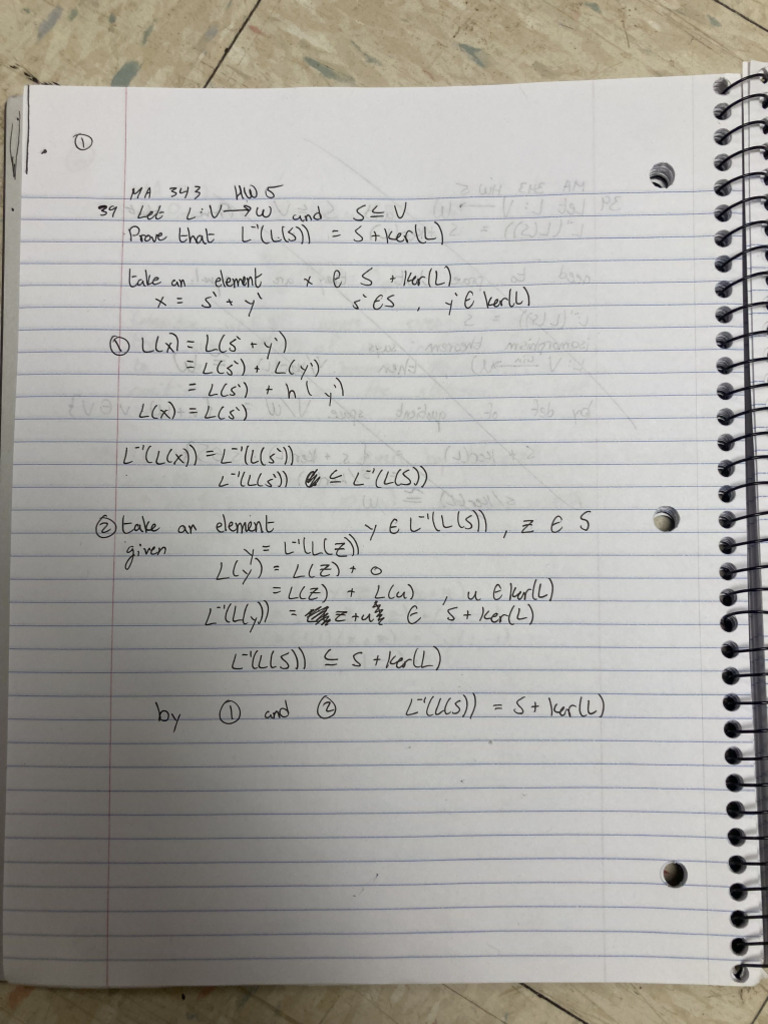 ①
MA 343 HW 5
39 Let L: V → W and S ⊆ V
Prove that L⁻¹(L(S)) = S + ker(L)
take an element x ∈ S + ker(L)
x = s' + y' s' ∈ S , y' ∈ ker(L)
① L(x) = L(s' + y')
= L(s') + L(y')
= L(s') + h(y')
L(x) = L(s')
L⁻¹(L(x)) = L⁻¹(L(s'))
L⁻¹(L(s')) ⊆ L⁻¹(L(S))
② take an element y ∈ L⁻¹(L(S)) , z ∈ S
given y = L⁻¹(L(z))
L(y) = L(z) + 0
= L(z) + L(u) , u ∈ ker(L)
L⁻¹(L(y)) = z + u ∈ S + ker(L)
L⁻¹(L(S)) ⊆ S + ker(L)
by ① and ② L⁻¹(L(S)) = S + ker(L)